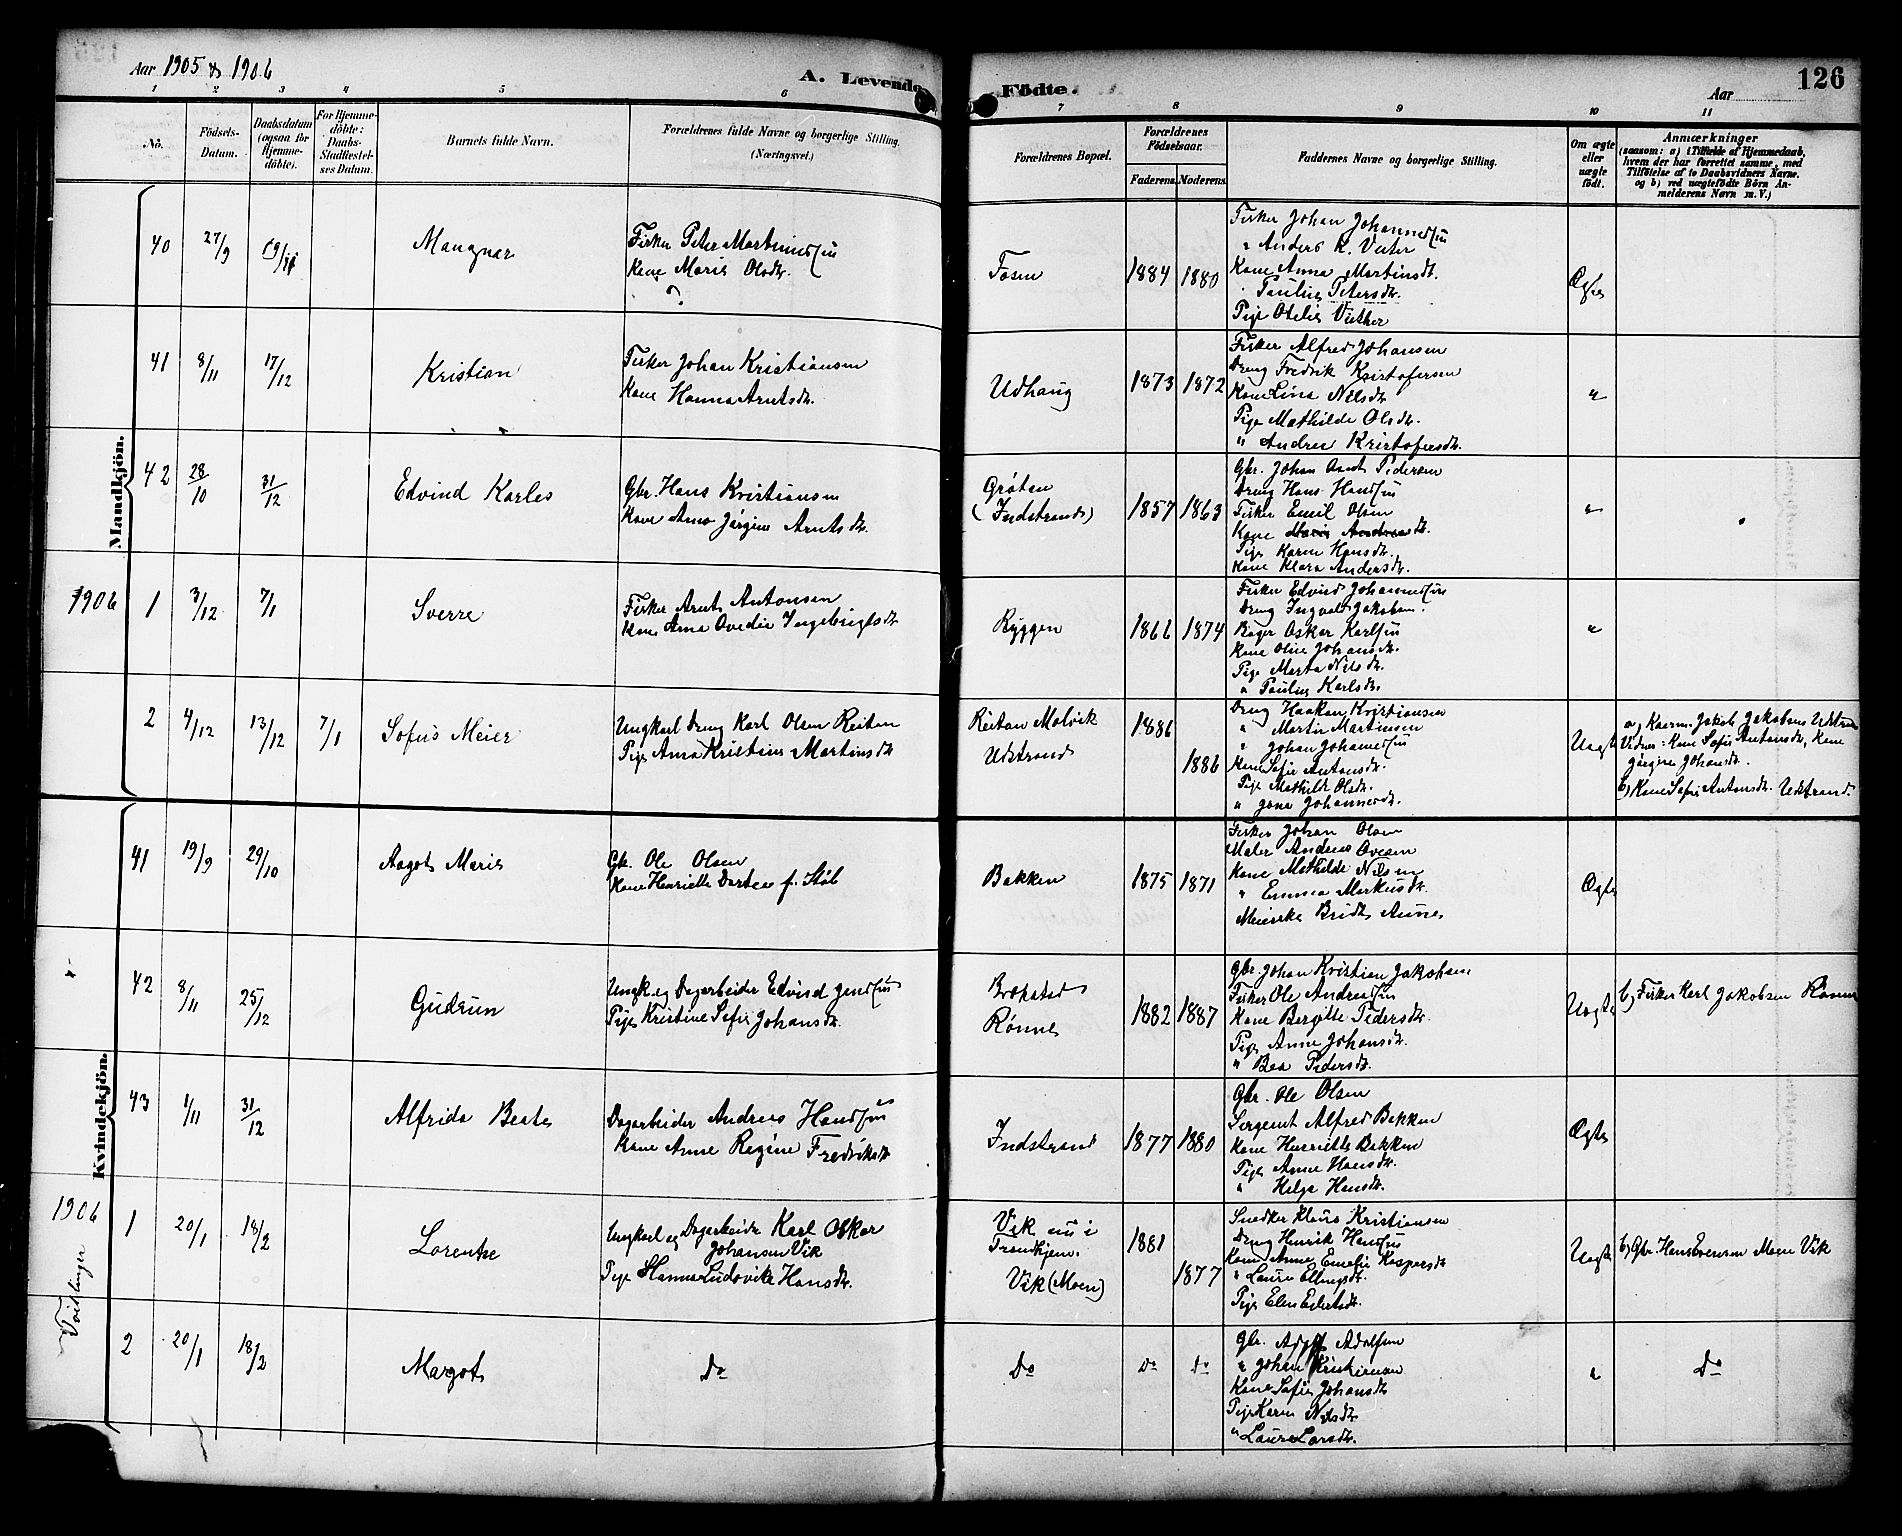 Aar 1905 & 1906
A. Levende Födte.
Aar
126
1 2 3 4 5 6 7 8 9 10 11
No.
Födsels-Datum.
Daabsdatum (ogsaa for Hjemmedöbte).
For Hjemmedöbte: Daabs-Stadfæstelses Datum.
Barnets fulde Navn.
Forældrenes fulde Navne og borgerlige Stilling. (Næringsvei.)
Forældrenes Bopæl.
Forældrenes Födselsaar.
Faderens. Moderens.
Faddernes Navne og borgerlige Stilling.
Om ægte eller uægte födt.
Anmærkninger
(saasom: a) i Tilfælde af Hjemmedaab, hvem der har forrettet samme, med Tilföielse af to Daabsvidners Navne. og b) ved uægtefödte Börn Anmelderens Navn m. V.)
Mandkjön.
40 27/9 19/11 Mangnar
Fisker Peter Martinussøn
Kone Marie Olsdtr.
Fosen 1884 1880
Fisker Johan Johannessøn
" Anders K. Vuter
Kone Anna Martinsdtr.
" Pauline Petersdtr.
Pige Otelie Vuther
Ægte
41 8/11 17/12 Kristian
Fisker Johan Kristiansen
Kone Hanna Arntsdtr.
Udhaug 1873 1872
Fisker Alfred Johansen
Dreng Fredrik Kristofersen
Kone Lina Nilsdtr
Pige Mathilde Olsdtr.
" Andrea Kristofersdtr.
"
42 28/10 31/12 Edvind Karles
Gbr. Hans Kristiansen
Kone Anna Jørgine Arntsdtr.
Grøten
(Indstrand) 1857 1863
Gbr. Johan Arnt Pedersen
Dreng Hans Hanssøn
Fisker Emil Olsen
Kone Marie Andreasdtr.
Pige Karen Hansdtr.
Kone Klara Andersdtr.
"
1906 1 3/12 7/1 Sverre
Fisker Arnt Antonsen
Kone Anna Ovedie Ingebrigtsdtr
Ryggen 1866 1874
Fisker Edvind Johannessøn
Dreng Ingvald Jakobsen.
Bager Oskar Karlsøn
Kone Oline Johansdtr.
Pige Marta Nilsdtr.
" Pauline Karlsdtr.
"
2 4/12 13/12 7/1 Sofus Meier
Ungkarl Dreng Karl Olsen Reitan
Pige Anna Kristine Martinsdtr
Reitan Malvik
Udstrand 1886
1886
Dreng Haakon Kristiansen
" Martin Martinsen
" Johan Johannessøn
Kone Sofie Antonsdtr.
Pige Mathilde Olsdtr.
" Jana Johannesdtr.
Uægte
a) Kaarm. Jakob Jakobsen Udstrand
Vidner: Kone Sofie Antonsdtr, Kone
Jørgine Johansdtr.
b) Kone Sofie Antonsdtr. Udstrand.
Kvindekjön.
41 19/9 29/10 Aagot Marie
Gbr. Ole Olsen
Kone Henriette Dortea f. Støb
Bakken 1875 1871
Fisker Johan Olsen
Maler Andreas Ovesen
Kone Mathilde Nilsen
" Emma Markusdtr.
Meierske Aune
Ægte
42 8/11 25/12 Gudrun
Ungk. og Dagarbeider Edvind Jenssøn
Pige Kristine Sofie Johansdtr.
Brekstad
Rønne 1882 1887
Gbr. Johan Kristian Jakobsen
Fisker Ole Andreassøn
Kone Bergitte Pedersdtr.
Pige Anna Johansdtr.
" Bea Pedersdtr.
Uægte
b) Fisker Karl Jakobsen Rønne
43 1/11 31/12 Alfrida Beate
Dagarbeider Andreas Hanssøn
Kone Anne Regine Fredriksdtr
Indstrand 1877 1880
Gbr. Ole Olsen
Sergeant Alfred Bakken
Kone Henriette Bakken
Pige Anne Hansdtr.
" Helga Hansdtr.
Ægte
1906
Tvillinger
1 20/1 18/2 Lorentse
Ungkarl og Dagarbeider Karl Oskar
Johansen Vik
Pige Hanna Ludovika Hansdtr.
Vik nu i
Trondhjem.
Vik (Moen) 1881
1877
Snedker Klaus Kristiansen
Dreng Henrik Hanssøn
Kone Anne Emelie Kaspersdtr
" Laura Ellingsdtr.
Pige Elen Eilertsdtr.
Uægte
b) Gbr. Hans Evensen Moen Vik
2 20/1 18/2 Margot
Do
Do Do Do
Gbr. Adolf Adolfsen
" Johan Kristiansen
Kone Sofie Johansdtr
Pige Karen Nilsdtr.
" Laura Larsdtr.
"
Do